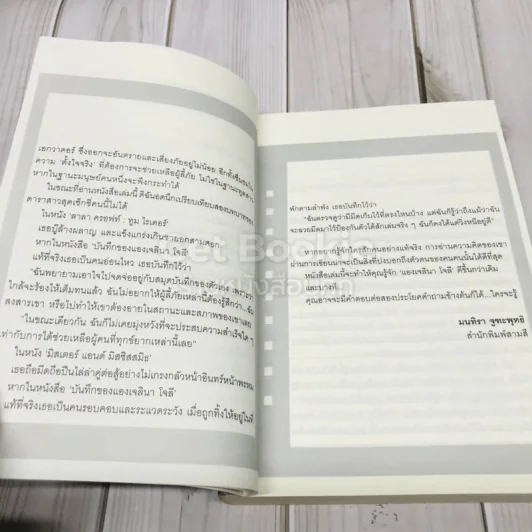 เอกวาดอร์ ซึ่งออกจะอันตรายและเสี่ยงภัยอยู่ไม่น้อย อีกทั้งยืนยันใน
ความ 'ตั้งใจจริง' ที่ต้องการจะช่วยเหลือผู้ลี้ภัย ไม่ใช่ในฐานะทูตฯ
หากในฐานะมนุษย์คนหนึ่งจะพึงกระทำได้
ในขณะที่อ่านหนังสือเล่มนี้ ดิฉันอดนึกเปรียบเทียบสองบทบาทของ
ดาราสาวสุดเซ็กซี่คนนี้ไม่ได้
ในหนัง 'ลาลา ครอฟท์ : ทูม ไรเดอร์'
เธอบู๊ล้างผลาญ และแข็งแกร่งเกินชายอกสามศอก
หากในหนังสือ 'บันทึกของแองเจลินา โจลี'
แท้ที่จริงเธอเป็นคนอ่อนไหว เธอบันทึกไว้ว่า
"ฉันพยายามเอาใจไปจดจ่ออยู่กับสมุดบันทึกของตัวเอง เพราะ
ใกล้จะร้องไห้เต็มทนแล้ว ฉันไม่อยากให้ผู้ลี้ภัยเหล่านี้ต้องรู้สึกว่า...ฉัน
สงสารเขา หรือไปทำให้เขาต้องอายในสถานะและสภาพของเขาเลย
"ในขณะเดียวกัน ฉันก็ไม่เคยมุ่งหวังที่จะประสบความสำเร็จใด ๆ
เท่ากับการได้ช่วยเหลือผู้คนที่ทุกข์ยากเหล่านี้เลย"
ในหนัง 'มิสเตอร์ แอนด์ มิสซิสสมิธ'
เธอถือมีดถือปืนไล่ล่าคู่ต่อสู้อย่างไม่เกรงกลัวหน้าอินทร์หน้าพรหม
หากในหนังสือ 'บันทึกของแองเจลินา โจลี'
แท้ที่จริงเธอเป็นคนรอบคอบและระแวดระวัง เมื่อถูกทิ้งให้อยู่ในที่
พักตามลำพัง เธอบันทึกไว้ว่า
"ฉันตรวจดูว่ามีมีดเก็บไว้ที่ตรงไหนบ้าง แต่ฉันก็รู้ว่าถึงแม้ว่าฉัน
จะฉวยมีดมาไว้ป้องกันตัวได้สักเล่มจริง ๆ ฉันก็คงได้แต่วิ่งหนีอยู่ดี"
หากอยากรู้จักใครสักคนอย่างแท้จริง การอ่านความคิดของเขา
ผ่านการเขียนน่าจะเป็นสิ่งที่บ่งบอกถึงตัวตนของคนคนนั้นได้ดีที่สุด
หนังสือเล่มนี้จะทำให้คุณรู้จัก 'แองเจลินา โจลี' ดีขึ้นกว่าเดิม
และบางที
คุณอาจจะมีคำตอบต่อสองประโยคคำถามข้างต้นก็ได้...ใครจะรู้
มนทิรา จูฑะพุทธิ
สำนักพิมพ์สามสี